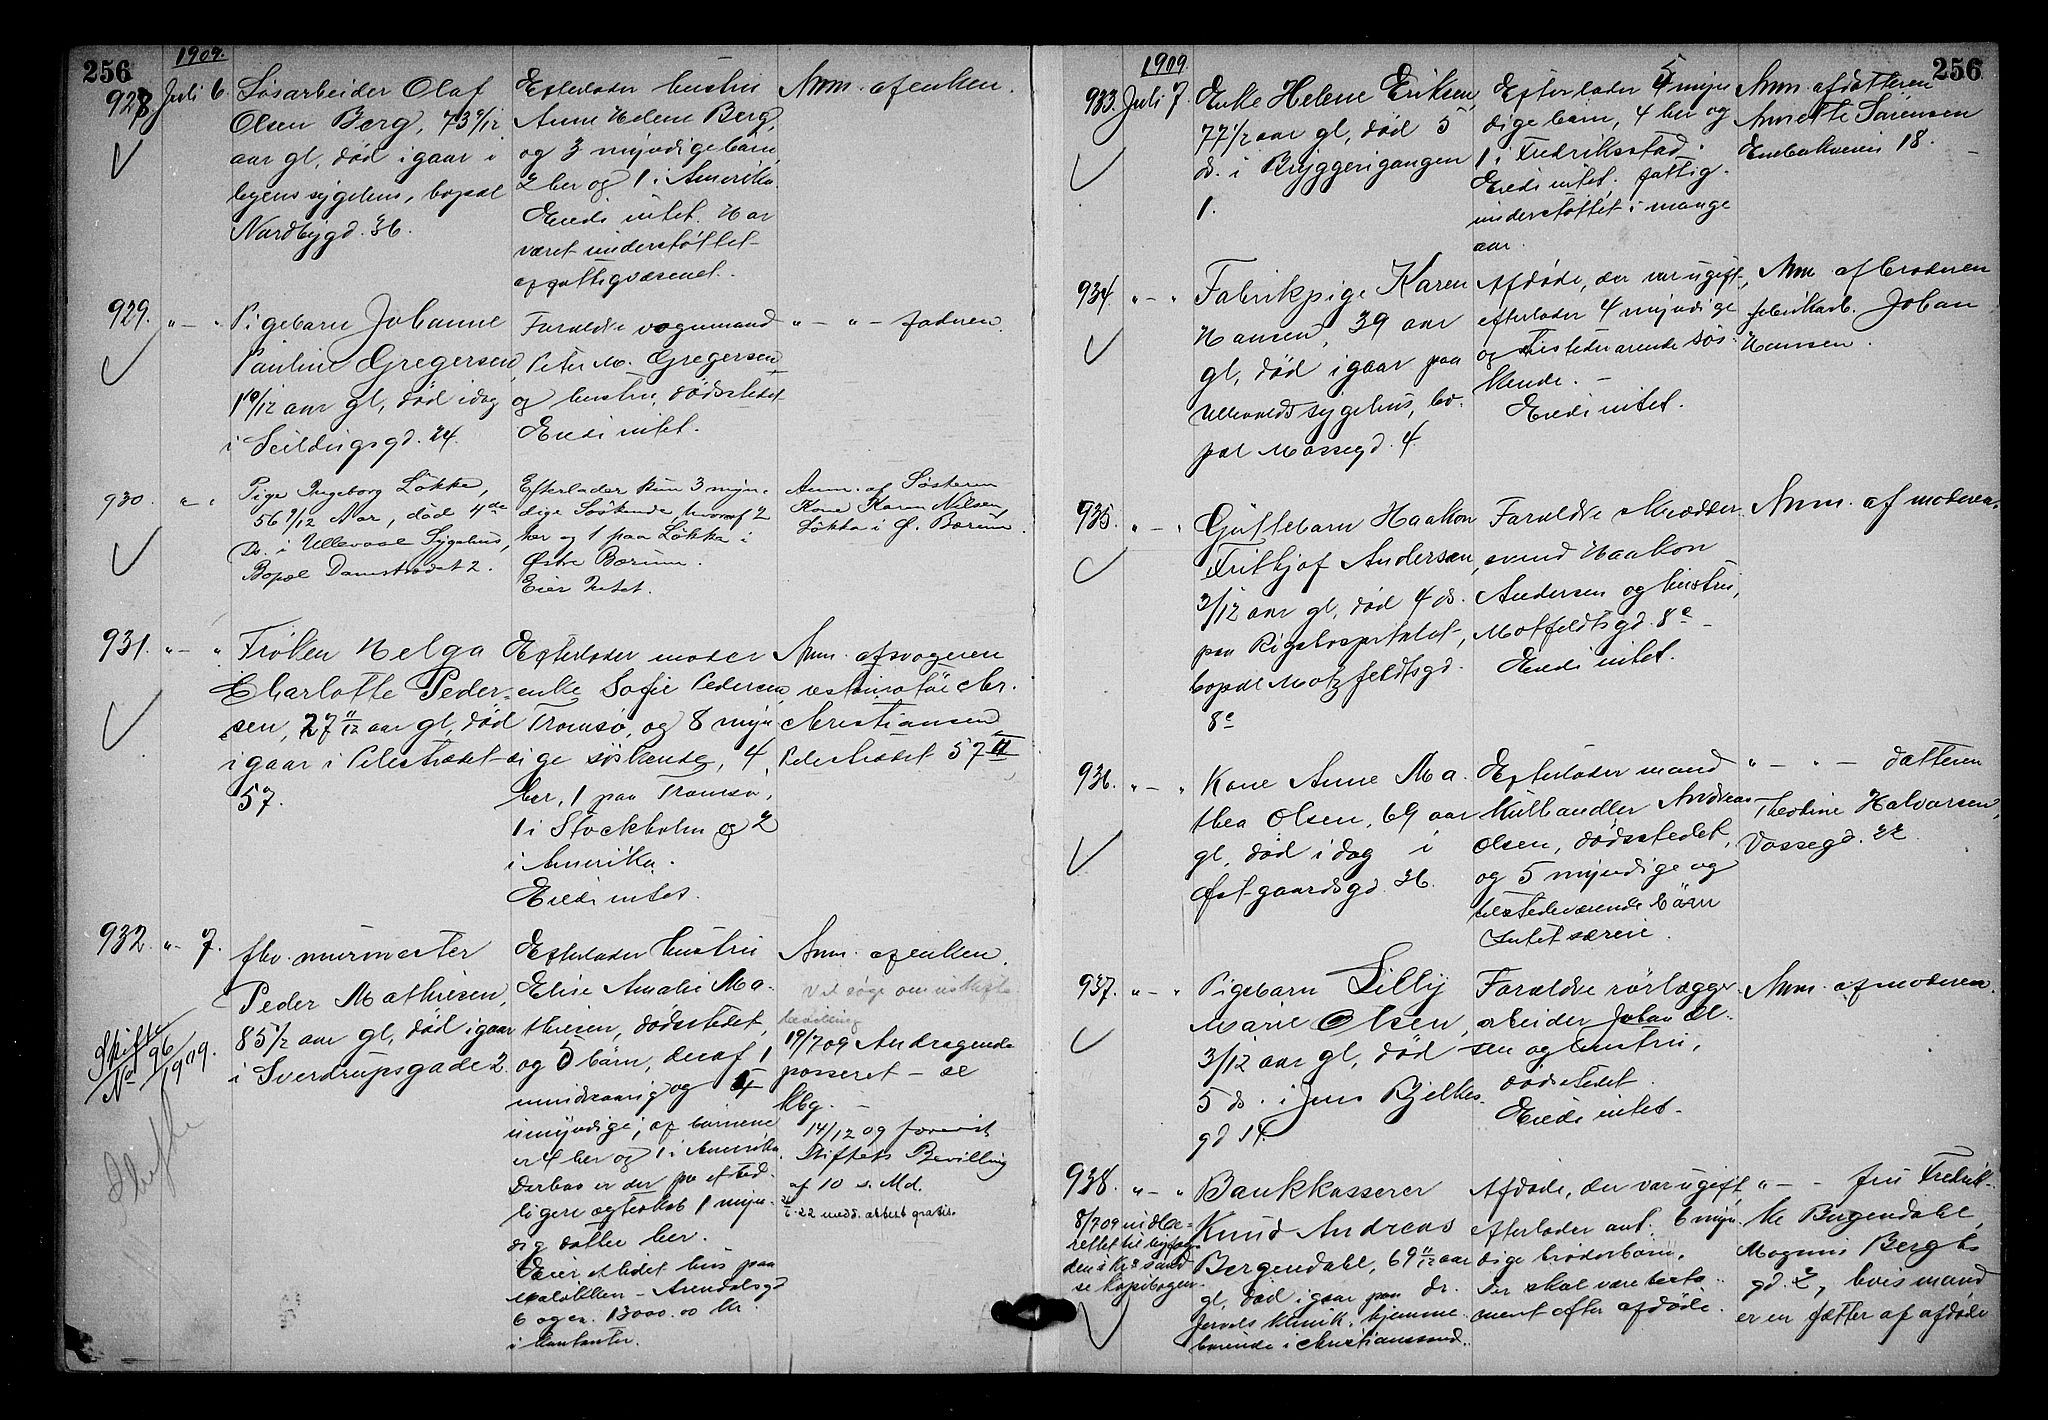 256
1909.
928
Juli 6.
Løsarbeider Olaf
Olsen Berg, 73 9/12
aar gl, død igaar i
byens sygehus, bopæl
Nordbygd. 36.
Efterlader hustru
Anne Helene Berg,
og 3 myndige barn,
2 her og 1 i Amerika.
Eiede intet. Har
været understøttet
af fattigvæsenet.
Anm. af enken.
929. " - "
Pigebarn Johanne
Pauline Gregersen,
1 10/12 aar gl, død idag
i Seildugsgd. 24.
Forældre vognmand
Peter M. Gregersen
og hustru, dødsstedet
Eiede intet.
" - " - faderen.
930. " "
Pige Ingeborg Løkke,
56 9/12 Aar, død 4de
Ds. i Ullevaal Sygehus,
Bopæl Damstrædet 2.
Efterlader kun 3 myn-
dige Søskende, hvoraf 2
her og 1 paa Løkka i
Østre Bærum.
Eier Intet.
Anm. af Søsteren
Kone Karen Nilsen,
Løkka i Ø. Bærum.
931. " - "
Frøken Helga
Charlotte Peder-
sen, 27 11/12 aar gl, død
igaar i Pilestrædet
57.
Efterlader moder
enke Sofie Pedersen,
Tromsø, og 8 myn-
dige søskende, 4
her, 1 paa Tromsø,
1 i Stockholm og 2
i Amerika.
Eiede intet.
Anm. af svogeren
restauratør Chr.
Christiansen
Pilestrædet 57 II
932. " - 7.
Skifte
No 96/1909.
Skifte
fhv. murmester
Peder Mathiesen,
85 1/2 aar gl, død igaar
i Sverdrupsgade 2.
Efterlader hustru
Elise Amalie Ma-
thiesen, dødsstedet,
og 5 børn, deraf 1
mindreaarig og 4
umyndige; af børnene
er 4 her og 1 i Amerika.
Derhos er der fra et tid-
ligere ægteskab 1 myn-
dig datter her.
Eier et lidet hus paa
- Arendalsgd
6 og ca. 13000.00 kr.
i kontanter.
Anm. af enken.
Vil søge om uskifte-
bevilling
19/7 09 Andragende
passeret - ae
Kbg. -
14/12 09 forevist
Stiftets Bevilling
af 10 s. Md.
22 medd. attest gratis.
1909.
256
933. Juli 7.
Enke Helene Eriksen,
77 1/2 aar gl, død 5
ds. i Bryggerigangen
1.
Efterlader 5 myn-
dige børn, 4 her og
1 i Fredriksstad.
Eiede intet, fattig-
understøttet i mange
aar.
Anm. af datteren
Annette Sørensen
18.
934. " - "
Fabrikpige Karen
Hansen, 39 aar
gl, død igaar paa
Ullevaals sygehus, bo-
pæl Mossegd. 4.
Afdøde, der var ugift,
efterlader 4 myndige
og tilstedeværende søs-
kende. -
Eiede intet.
Anm. af broderen
fabrikarb. Johan
Hansen.
935. " - "
Guttebarn Haakon
Fritjof Andersen,
3/12 aar gl, død 4 ds.
paa Rigshospitalet,
bopæl Motzfeldtsgd.
8c
Forældre skrædder-
svend Haakon
Andersen og hustru,
Motfeldtsgd. 8c -
Eiede intet.
Anm. af moderen.
936. " - "
Kone Anne Ma-
thea Olsen, 69 aar
gl, død i dag i
Østgaardsgd. 36.
Efterlader mand
Kulhandler Andreas
Olsen, dødsstedet,
og 5 myndige og
tilstedeværende børn
Intet særeie.
" - " - datteren
Theoline Halvorsen,
Vossegd. 22
937. " - "
Pigebarn Lilly
Marie Olsen,
3/12 aar gl, død
5 ds. i Jens Bjelkes-
gd 14.
Forældre rørlægger-
arbeider Johan Ol-
sen og hustru,
dødsstedet.
Eiede intet -
Anm. af moderen.
938. " - "
8/7 09 indbe-
rettet til byfog-
den i Kr.sand
se kopibogen.
Bankkasserer
Knud Andreas
Bergendahl, 69 11/12 aar
gl, død igaar paa dr.
Jervels klinik, hjemme-
hørende i Christianssand.
Afdøde, der var ugift,
efterlader ant. 6 myn-
dige brøderbørn.
Der skal være testa-
ment efter afdøde.
" - - fru Fredrik-
ke Bergendahl,
Magnus Bergs
gd. 2, hvis mand
er en fætter af afdøde